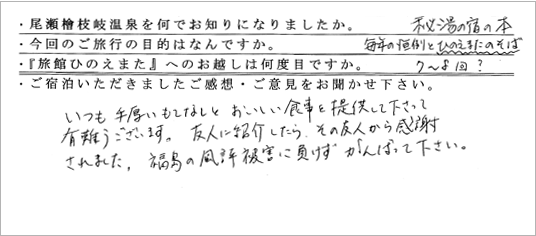 ・尾瀬檜枝岐温泉を何でお知りになりましたか。 秘湯の宿の本
・今回のご旅行の目的はなんですか。 毎年の恒例とひのえまたのそば
・『旅館ひのえまた』へのお越しは何度目ですか。 7〜8回?
・ご宿泊いただきましたご感想・ご意見をお聞かせ下さい。
いつも手厚いもてなしとおいしい食事を提供して下さって
有難うございます。友人に紹介したら、その友人から感謝
されました。福島の風評被害に負けずがんばって下さい。